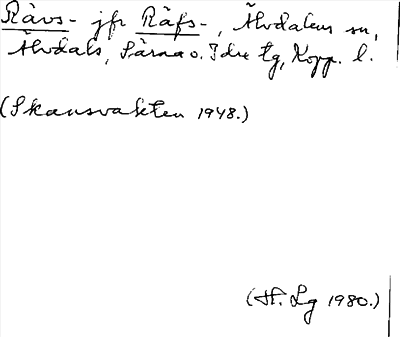 Råvs- jfr Råfs-, Älvdalens sn,
Älvdals, Särna o. Idre tg, Kopp. l.
(Skansvakten 1948.)
(H. Lg 1980.)